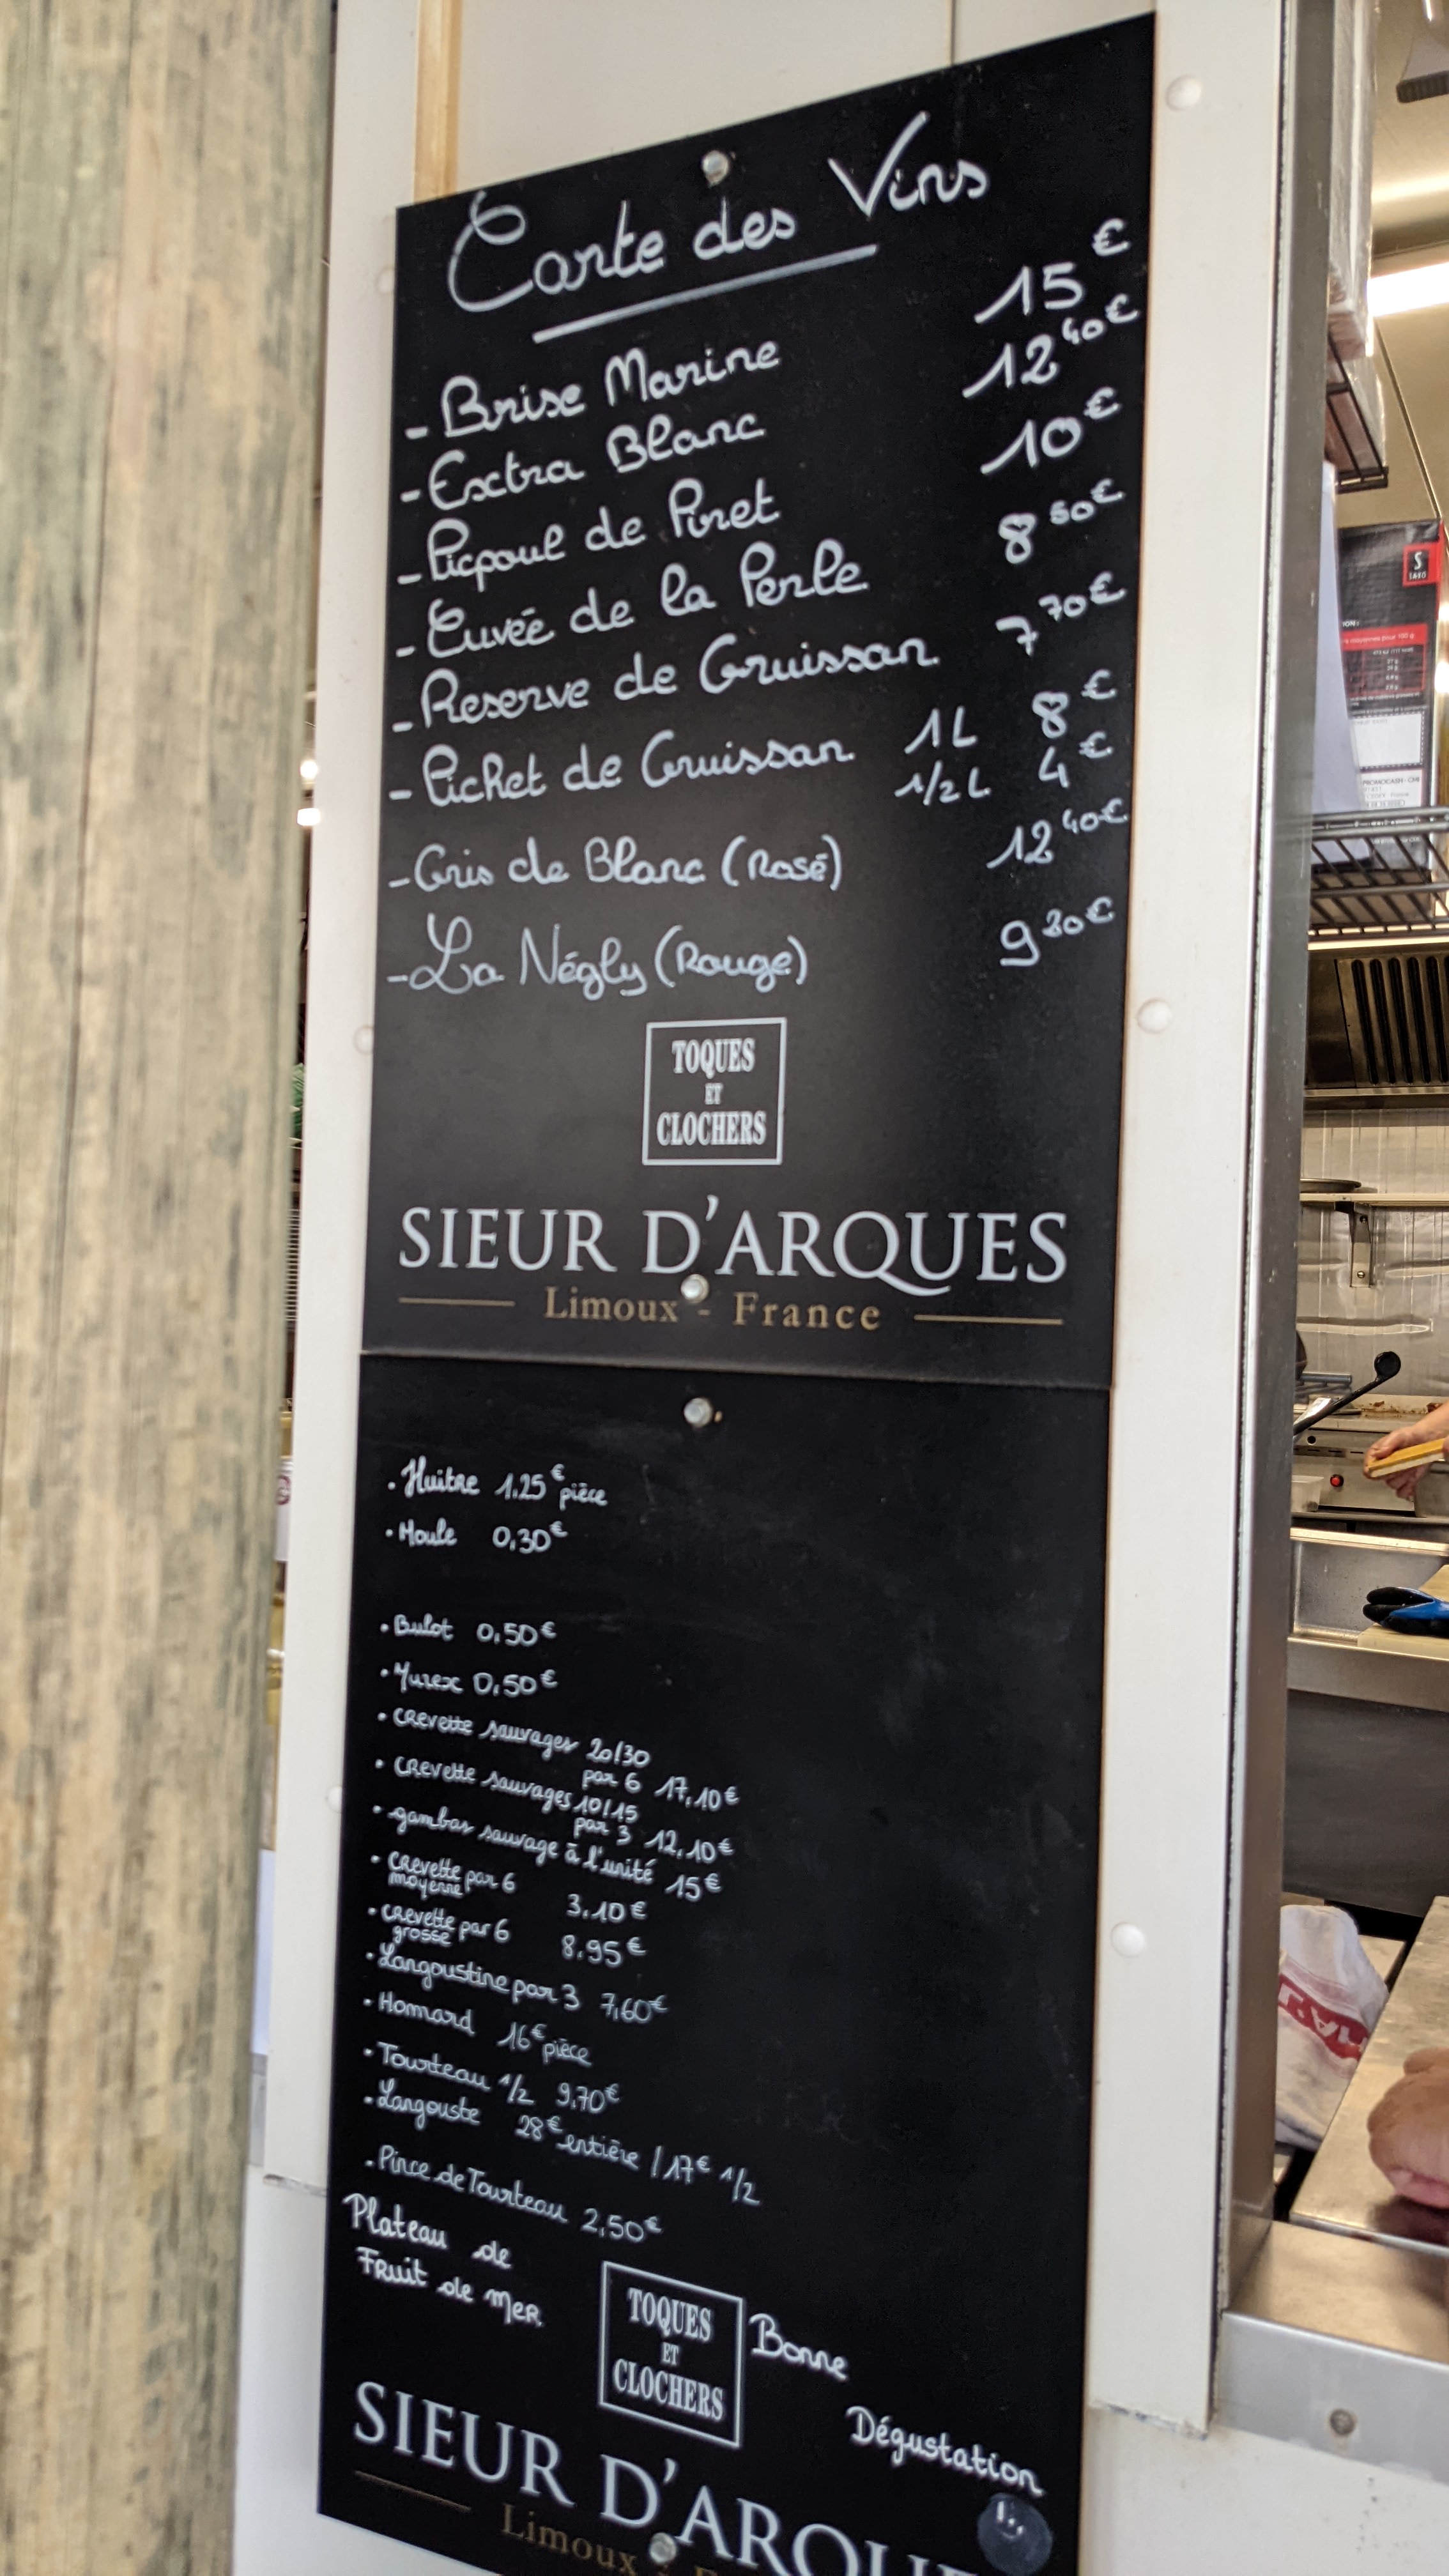 Carte des Vins
- Brise Marine 15€
- Extra Blanc 12 40€
- Picpoul de Pinet 10€
- Cuvée de la Perle 8 50€
- Reserve de Gruissan 7 70€
- Pichet de Gruissan 1L 8€
1/2L 4€
- Gris de Blanc (Rosé) 12 40€
- La Négly (Rouge) 9 20€
TOQUES
ET
CLOCHERS
SIEUR D'ARQUES
Limoux - France
. Huitre 1.25€ pièce
. Moule 0,30€
. Bulot 0,50€
. Murex 0,50€
. Crevette sauvages 20/30
par 6 17,10€
. Crevette sauvages 10/15
par 3 12,10€
. gambas sauvage à l'unité 15€
. Crevette par 6 3,10€
moyenne
. Crevette par 6 8,95€
grosse
. Langoustine par 3 7,60€
. Homard 16€ pièce
. Tourteau 1/2 9,70€
. Langouste 28€ entière / 17€ 1/2
. Pince de Tourteau 2,50€
Plateau de
Fruit de Mer
TOQUES
ET
CLOCHERS
Bonne
Dégustation
SIEUR D'ARQU
Limoux -
S